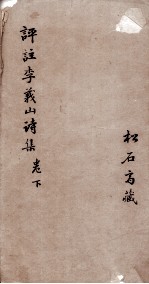 松石高藏
評註李義山诗集卷下